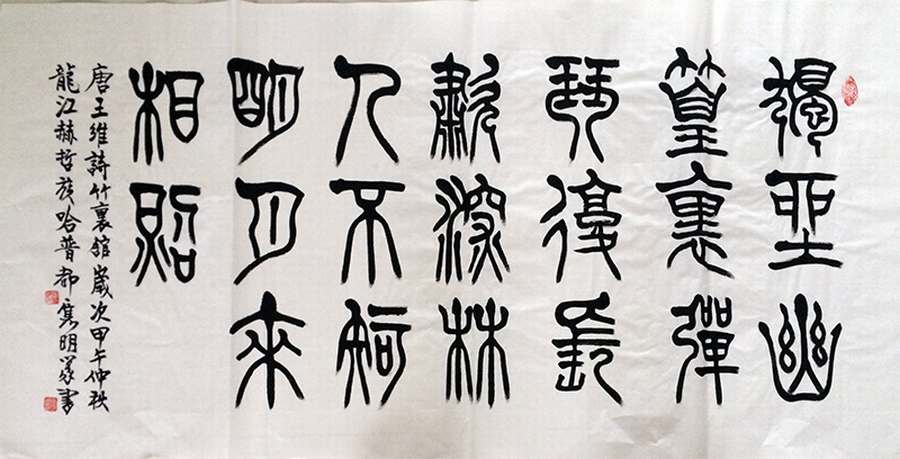 獨坐幽
篁裏彈
琴復長
嘯深林
人不知
明月來
相照
唐王維詩竹裏館歲次甲午仲秋
龍江赫哲族哈普都雋明篆書